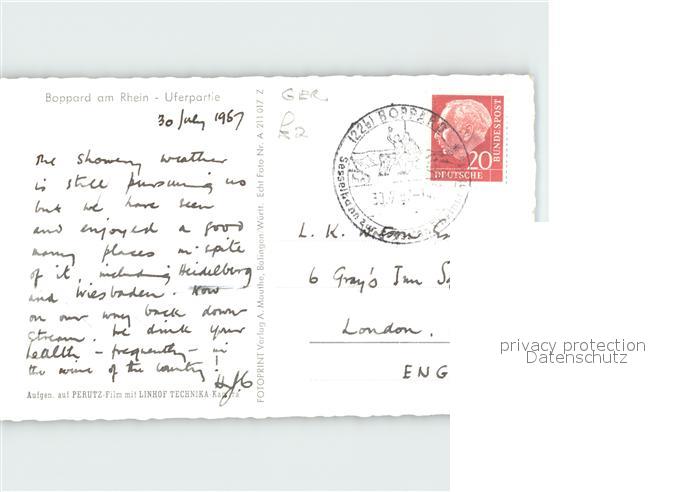 Boppard am Rhein - Uferpartie
30 July 1957
The showery weather
is still pursuing us
but we have seen
and enjoyed a good
many places in spite
of it, including Heidelberg
and Wiesbaden. Now
on our way back down
stream. We drink your
health - frequently - in
the wine of the country!
Aufgen. auf PERUTZ-Film mit LINHOF TECHNIKA-Kamera
FOTOPRINT Verlag A. Mauthe, Balingen-Württ. Echt Foto Nr. A 211 017 Z
GER
(22b) BOPPARD
Sesselbahn zur
20
DEUTSCHE
BUNDESPOST
L. K.
6 Gray's Inn
London.
ENG
privacy protection
Datenschutz